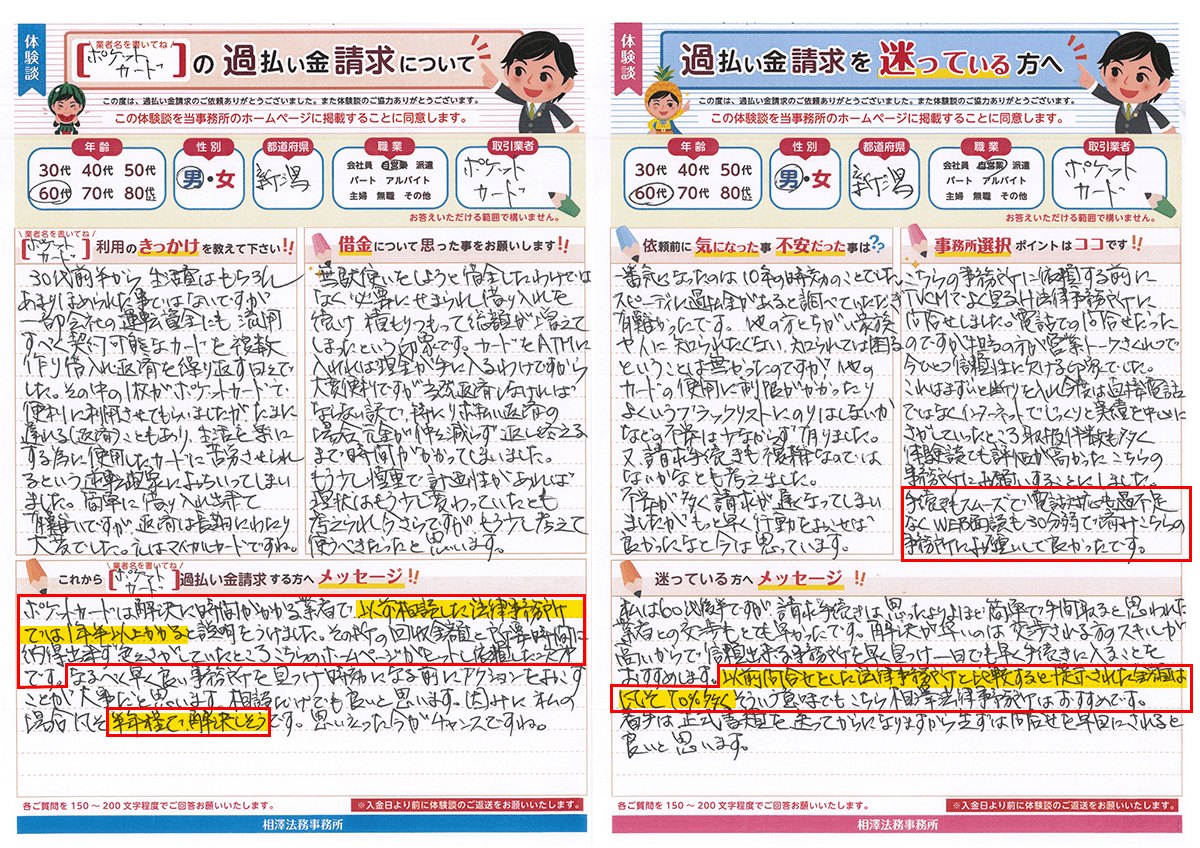 体験談
業者名を書いてね
[ポケットカード]の過払い金請求について
この度は、過払い金請求のご依頼ありがとうございました。また体験談のご協力ありがとうございます。
この体験談を当事務所のホームページに掲載することに同意します。
年齢
性別
都道府県
職業
取引業者
30代 40代 50代
60代 70代 80代以上
男・女
新潟
会社員 自営業 派遣
パート アルバイト
主婦 無職 その他
ポケットカード
お答えいただける範囲で構いません。
業者名を書いてね
[ポケットカード]利用のきっかけを教えて下さい!!
30代前半から、生活費はもちろん
あまりほめられた事ではないですが
一部会社の運転資金にも流用
すべく契約可能なカードを複数
作り借入れ返済を繰り返す日々で
した。その中の1枚がポケットカードで
便利に利用させてもらいましたが、たまに
遅れる(返済)こともあり、生活を楽に
する為に使用したカードに苦労させられ
るという
ました。簡単に借り入れ出来て
ですが返済は長期にわたり
大変でした。元はマイカルカードですね。
借金について思った事をお願いします!!
無駄使いをしようと借金したわけでは
なく必要にせまられ借り入れを
続け積もりつもって総額が増えて
しまたという印象です。カードをATMに
入れれば現金が手に入るわけですから
大変便利ですが当然返済しなければ
ならない訳で、特にリボ払い返済の
場合元金が仲々減らず返し終える
まで時間がかかってしまいました。
もう少し慎重で計画性があれば
現状はもう少し変わっていたとも
考えられ今さらですがもう少し考えて
使うべきだったと思います。
これから
業者名を書いてね
[ポケットカード]過払い金請求する方へメッセージ!!
ポケットカードは解決に時間がかかる業者で、以前相談した法律事務所
では1年半以上かかると説明をうけました。その所の回収金額と所要時間に
納得出来ず色々さがしていたところこちらのホームページがヒットし依頼した次第
です。なるべく早く良い事務所を見つけ時効になる前にアクションをおこす
ことが大事だと思います。相談だけでも良いと思います。因みに私の
場合およそ半年程で解決しそうです。思い立った今がチャンスですね。
各ご質問を150～200文字程度でご回答お願いいたします。
※入金日より前に体験談のご返送をお願いいたします。
相澤法務事務所
体験談
過払い金請求を迷っている方へ
この度は、過払い金請求のご依頼ありがとうございました。また体験談のご協力ありがとうございます。
この体験談を当事務所のホームページに掲載することに同意します。
年齢
性別
都道府県
職業
取引業者
30代 40代 50代
60代 70代 80代以上
男・女
新潟
会社員 自営業 派遣
パート アルバイト
主婦 無職 その他
ポケットカード
お答えいただける範囲で構いません。
依頼前に気になった事 不安だった事は??
一番気になったのは10年の時効のことでした。
スピーディに過払金があると調べていただき
有難かったです。他の方とちがい家族
や人に知られたくない、知られては困る
ということは無かったのですが他の
カードの使用に制限がかかったり
よくいうブラックリストにのりはしないか
などの不安は少なからず有りました。
又、請求手続きも複雑なのでは
ないかなども考えました。
不安が多く請求が遅くなってしまい
ましたがもっと早く行動をおこせば
良かったなと今は思っています。
事務所選択ポイントはココです!!
こちらの事務所に依頼する前に
TVCMでよく見る法律事務所に
問合せしました。電話での問合せだった
のですが担当の方が営業トークきつくて
今ひとつ信頼性に欠ける印象でした。
これはまずいと断りを入れ今度は直接電話
ではなくインターネットでじっくりと実績を中心に
さがしていたところ取扱件数も多く
体験談でも評価が高かったこちらの
事務所にお願いすることにしました。
手続もスムーズで電話対応も過不足
なくWEB面談も30分弱で済みこちらの
事務所にお願いして良かったです。
迷っている方へメッセージ!!
私は60代後半ですが請求手続きは思ったよりほど簡単で手間取ると思われた
業者との交渉もとても早かったです。解決が早いのは交渉される方のスキルが
高いからで信頼出来る事務所を早く見つけ一日でも早く手続きに入ることを
おすすめします。以前問合せをした法律事務所と比較すると提示された金額は
およそ70%多くそういう意味でもこちら相澤法務事務所はおすすめです。
着手は正式書類を送ってからになりますからまずは問合せを早目にされると
良いと思います。
各ご質問を150～200文字程度でご回答お願いいたします。
※入金日より前に体験談のご返送をお願いいたします。
相澤法務事務所